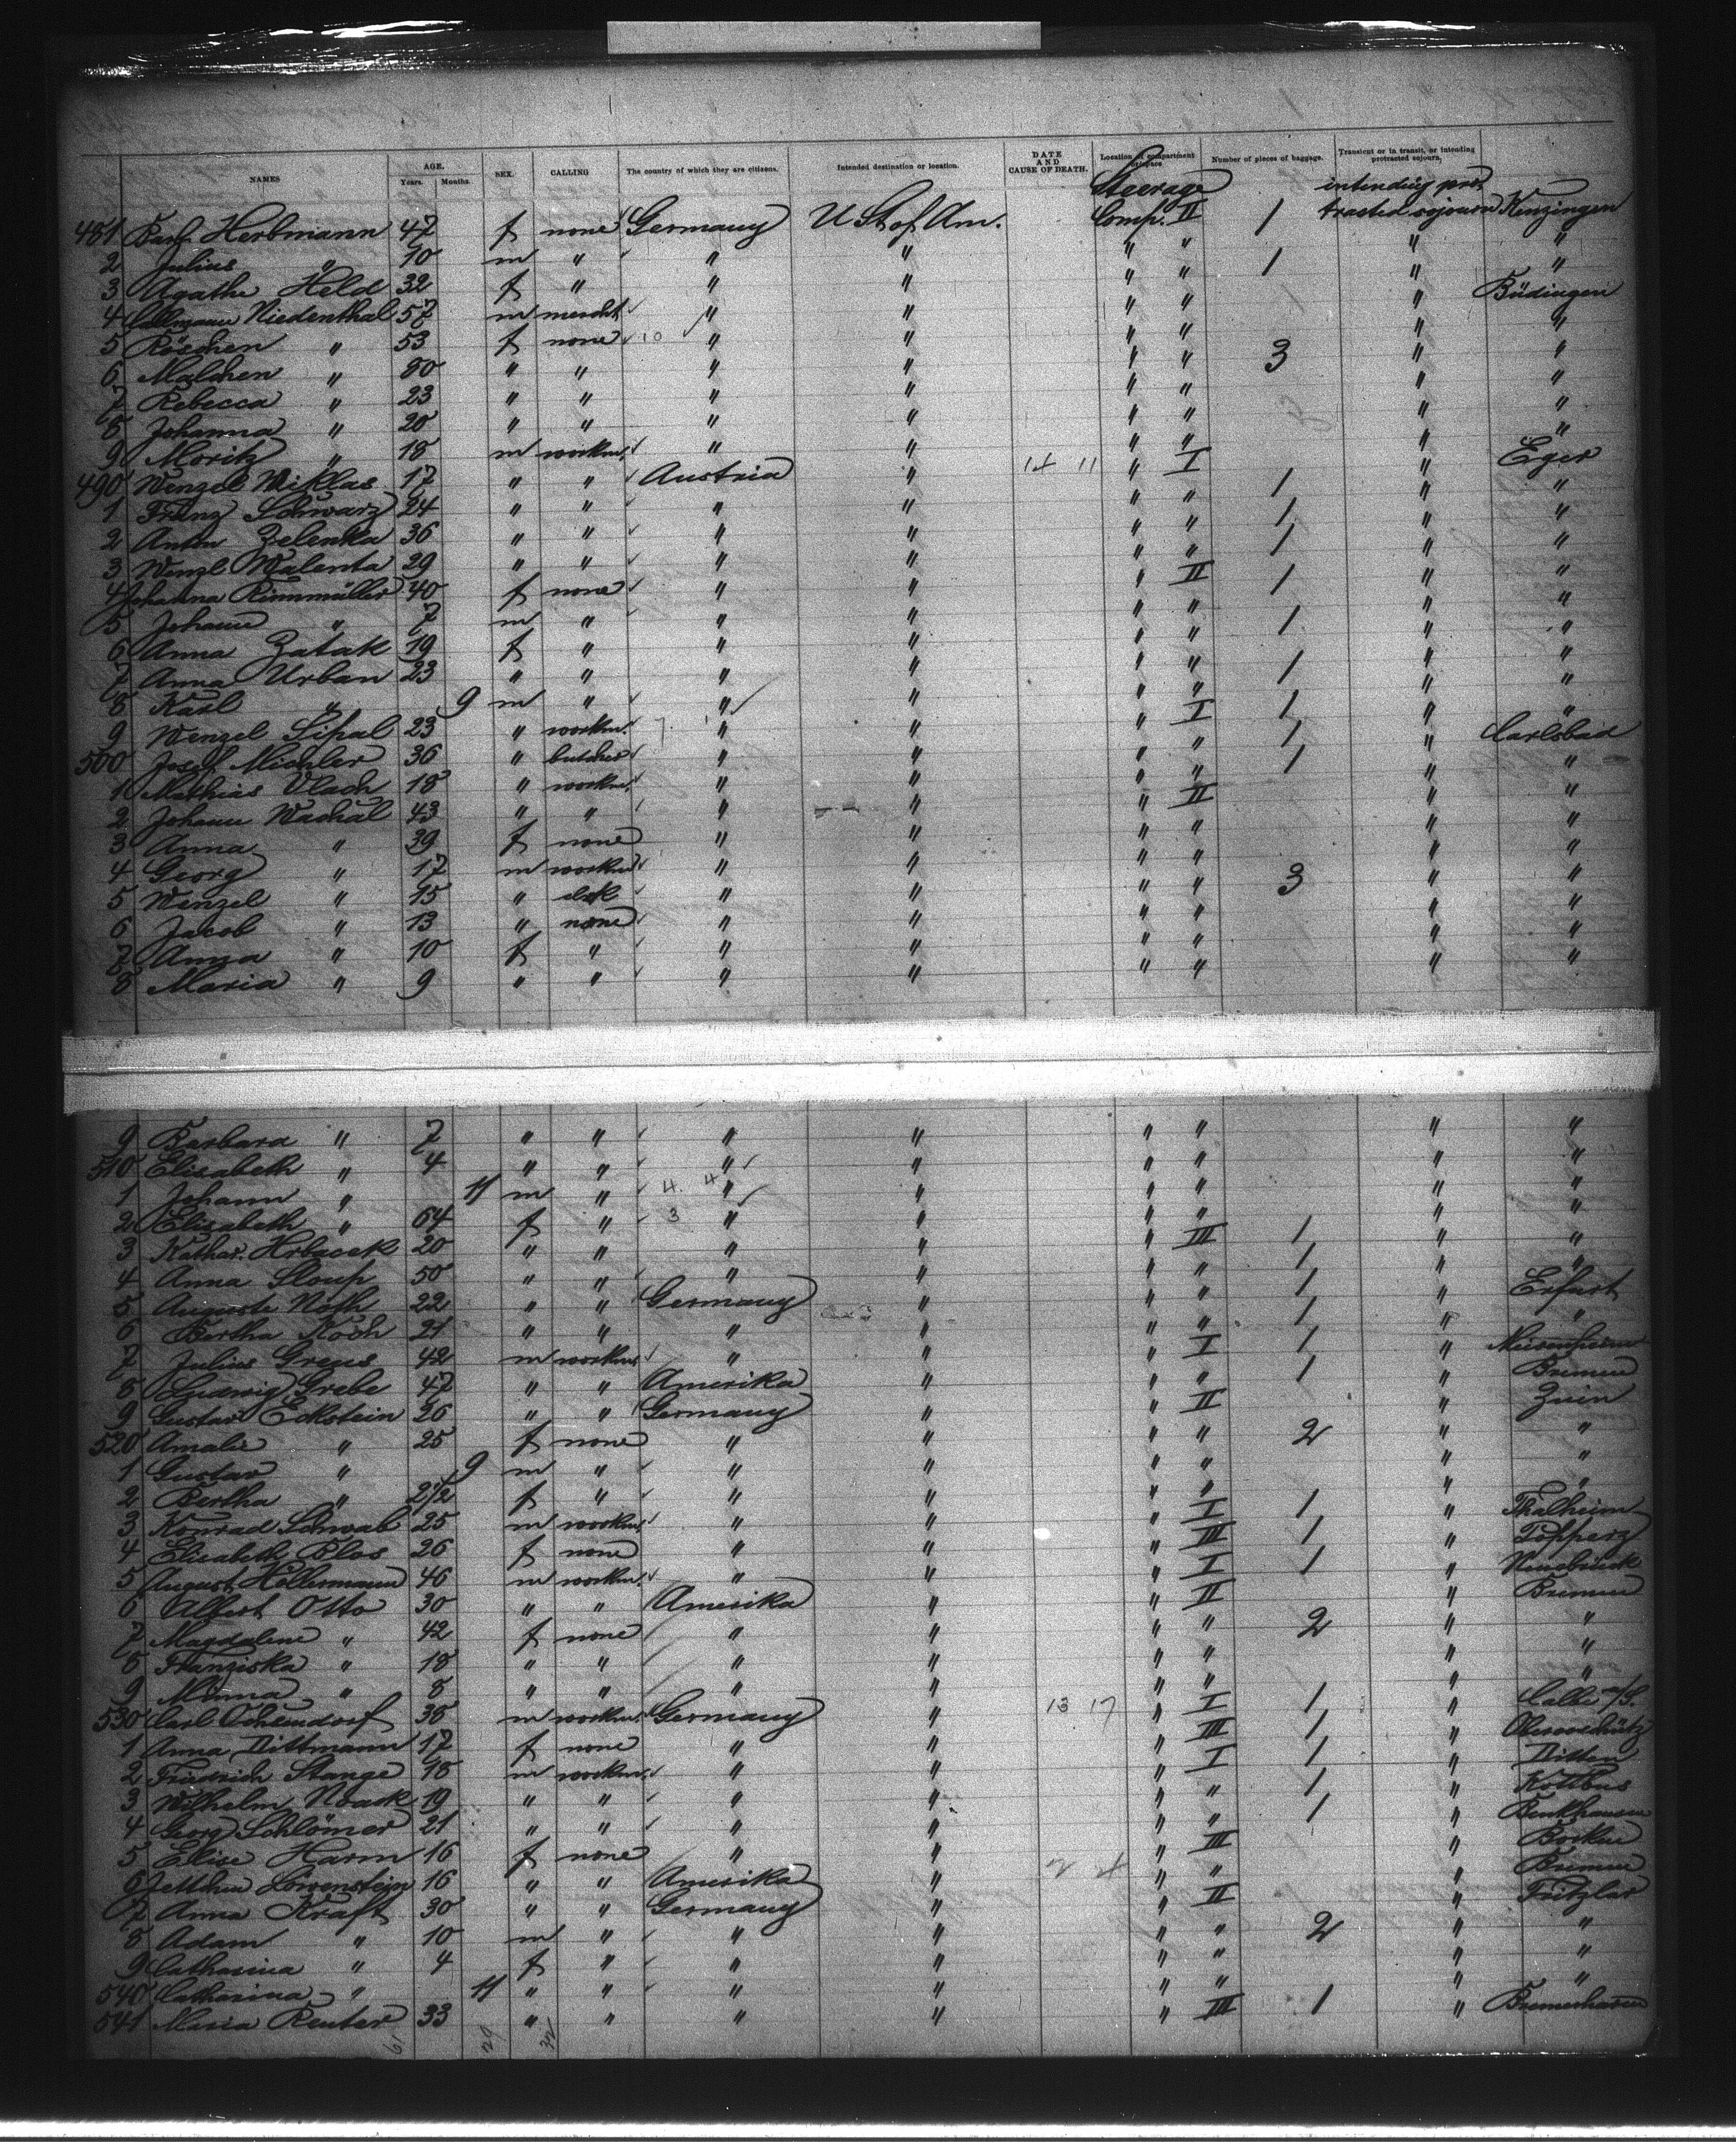 NAMES AGE. Years. Months. SEX. CALLING The country of which they are citizens. Intended destination or location. DATE AND CAUSE OF DEATH. Location of compartment or space Number of pieces of baggage. Transient or in transit, or intending protracted sojourn.
Steerage intending pro-
481 Barb. Herbmann 47 f none Germany U St of Am. Comp. II 1 tracted sojourn Kenzingen
2 Julius " 10 m " " " " " 1 " "
3 Agathe Held 32 f " " " " " " "
4 Callmann Niedenthal 57 m mercht " " " " " Büdingen
5 Röschen " 53 f none 10 " " " " " "
6 Malchen " 30 " " " " " " 3 " "
7 Rebecca " 23 " " " " " " " "
8 Johanna " 20 " " " " " " " "
9 Moritz " 18 m workm. " " " " " "
490 Wenzel Miklas 17 " " Austria " 14 11 " I " Eger
1 Franz Schwarz 24 " " " " " " 1 " "
2 Anton Zelenka 36 " " " " " " 1 " "
3 Wenzl Walenta 29 " " " " " " 1 " "
4 Johanna Rinnmüller 40 f none " " " II 1 " "
5 Johann " 7 m " " " " " " "
6 Anna Zatak 19 f " " " " " 1 " "
7 Anna Urban 23 " " " " " " 1 " "
8 Karl " 9 m " " " " " " "
9 Wenzel Sipal 23 " workm. 7 " " " I 1 " "
500 Josef Michler 36 " butcher " " " " 1 " Carlsbad
1 Mathias Vlach 18 " workm. " " " " 1 " "
2 Johann Wachal 43 " " " " " II " "
3 Anna " 39 f none " " " " " "
4 Georg " 17 m workm " " " " " "
5 Wenzel " 15 " clrk " " " " 3 " "
6 Jacob " 13 " none " " " " " "
7 Anna " 10 f " " " " " " "
8 Maria " 9 " " " " " " " "
9 Barbara " 7 " " " " " " " "
510 Elisabeth " 4 " " " " " " " "
1 Johann " 11 m " 4. 4 " " " " " "
2 Elisabeth " 64 f " 3 " " " " " "
3 Kathar. Hrbacek 20 " " " " " III 1 " "
4 Anna Sloup 50 " " " " " " 1 " "
5 Auguste Noth 22 " " Germany " " " 1 " Erfurt
6 Bertha Koch 21 " " " " " " 1 " "
7 Julius Greus 42 m workm " " " I 1 " Meisenheim
8 Ludwig Grebe 47 " " Amerika " " " 1 " Bremen
9 Gustav Eckstein 26 " " Germany " " II " Znin
520 Amalie " 25 f none " " " " 2 " "
1 Gustav " 9 m " " " " " " "
2 Bertha " 2 1/2 f " " " " " " "
3 Konrad Schwab 25 m workm. " " " I 1 " Thalheim
4 Elisabeth Blos 26 f none " " " III 1 " Topperz
5 August Hellermann 46 m workm. " " " I 1 " Neuebrück
6 Albert Otto 30 " " Amerika " " II " Bremen
7 Magdalene " 42 f none " " " " 2 " "
8 Franziska " 18 " " " " " " " "
9 Minna " 8 " " " " " " " "
530 Carl Ochsendorf 35 m workm. Germany " 13 17 " I 1 " Calbe a/S.
1 Anna Dittmann 17 f none " " " III 1 "
2 Friedrich Stange 18 m workm. " " " I 1 " Ditten
3 Wilhelm Noack 19 " " " " " " 1 " Kottbus
4 Georg Schlömer 21 " " " " " " 1 " Benkhausen
5 Elise Harm 16 f none " " " III " Borken
6 Jettchen Löwenstein 16 " " Amerika " 2 4 " " " Bremen
7 Anna Kraft 30 " " Germany " " II " Fritzlar
8 Adam " 10 m " " " " " 2 " "
9 Catharina " 4 f " " " " " " "
540 Catharina " 11 " " " " " " " "
541 Maria Reuter 33 " " " " " III 1 " Bremerhaven
61 29 32